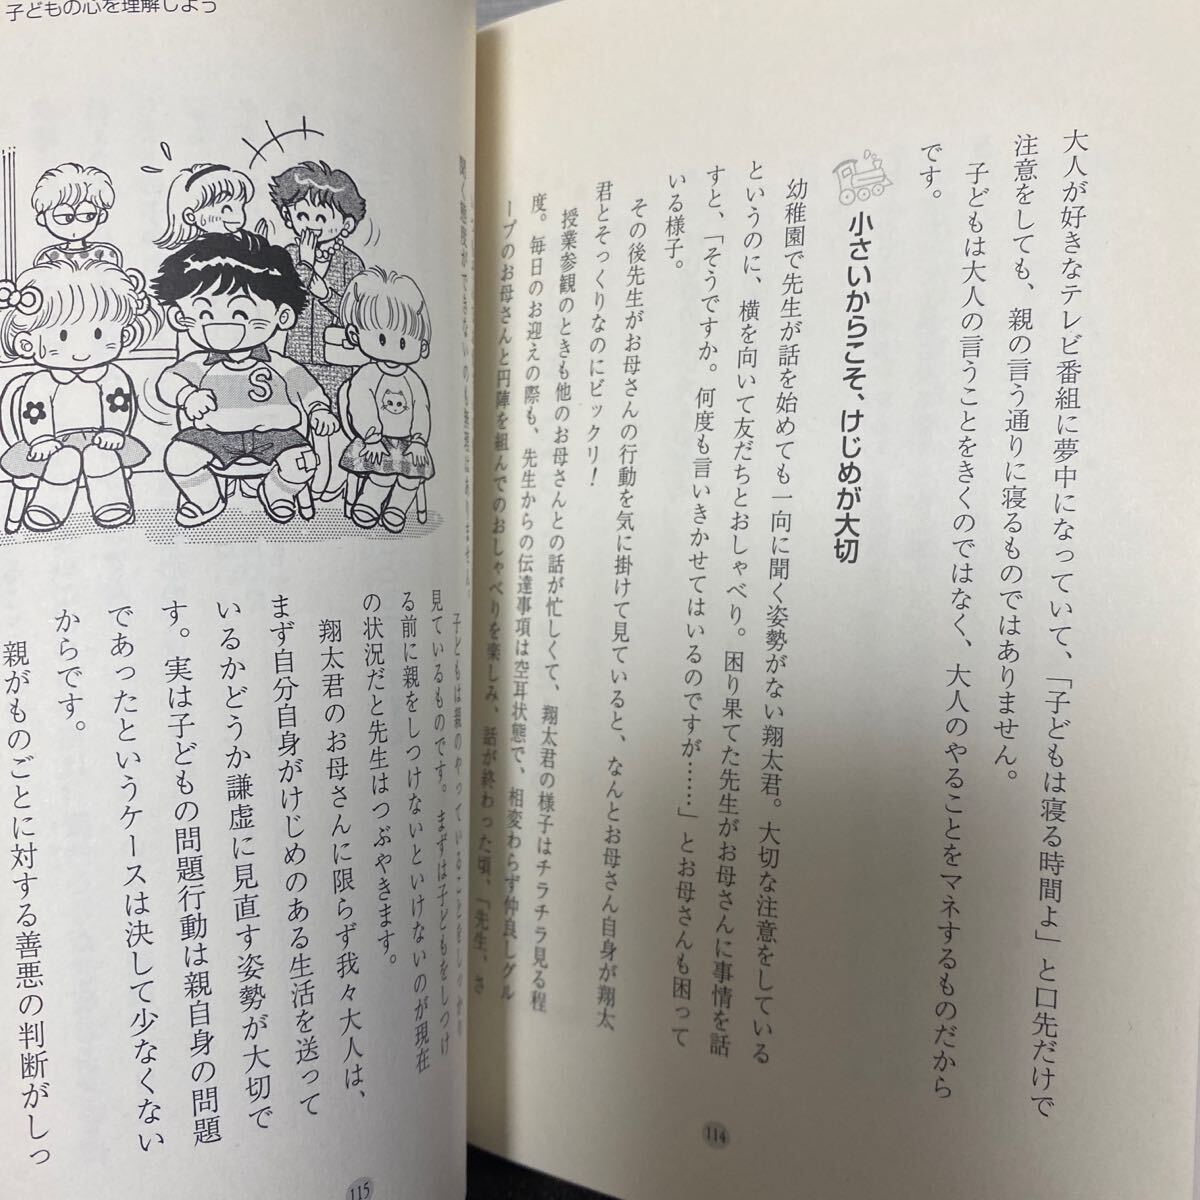 大人が好きなテレビ番組に夢中になっていて、「子どもは寝る時間よ」と口先だけで
注意をしても、親の言う通りに寝るものではありません。
子どもは大人の言うことをきくのではなく、大人のやることをマネするものだから
です。
小さいからこそ、けじめが大切
幼稚園で先生が話を始めても一向に聞く姿勢がない翔太君。大切な注意をしている
というのに、横を向いて友だちとおしゃべり。困り果てた先生がお母さんに事情を話
すと、「そうですか。何度も言いきかせてはいるのですが……」とお母さんも困って
いる様子。
その後先生がお母さんの行動を気に掛けて見ていると、なんとお母さん自身が翔太
君とそっくりなのにビックリ!
授業参観のときも他のお母さんとの話が忙しくて、翔太君の様子はチラチラ見る程
度。毎日のお迎えの際も、先生からの伝達事項は空耳状態で、相変わらず仲良しグル
ープのお母さんと円陣を組んでのおしゃべりを楽しみ、話が終わった頃、「先生、さ
114
子どもの心を理解しよう
聞く態度ができないのも無理はありません。
子どもは親のやっていることをしっかり
見ているものです。まずは子どもをしつけ
る前に親をしつけないといけないのが現在
の状況だと先生はつぶやきます。
翔太君のお母さんに限らず我々大人は、
まず自分自身がけじめのある生活を送って
いるかどうか謙虚に見直す姿勢が大切で
す。実は子どもの問題行動は親自身の問題
であったというケースは決して少なくない
からです。
親がものごとに対する善悪の判断がしっ
S
115